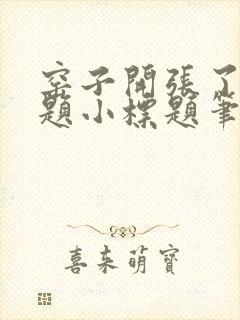 窑子開張了
題小標題筆
喜来萌寶